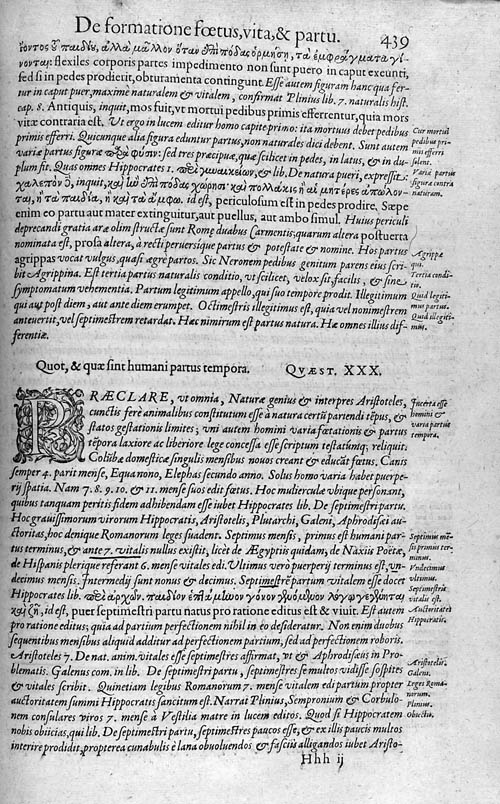 De formatione fœtus, vita, & partu. 439
flexiles corporis partes impedimento non sunt puero in caput exeunti,
sed si in pedes prodierit, obturamenta contingunt. Esse autem figuram hanc qua fer-
tur in caput puer, maximè naturalem & vitalem, confirmat Plinius lib. 7. naturalis hist.
cap. 8. Antiquis, inquit, mos fuit, vt mortui pedibus primis efferrentur, quia mors
vitæ contraria est. Vt ergo in lucem editur homo capite primo: ita mortuus debet pedibus
primis efferri. Quicunque alia figura eduntur partus, non naturales dici debent. Sunt autem
variæ partus figuræ sed tres præcipuæ, quæ scilicet in pedes, in latus, & in du-
plum fit. Quas omnes Hippocrates 1. & lib. De natura pueri, expressit:
id est, periculosum est in pedes prodire. Sæpe
enim eo partu aut mater extinguitur, aut puellus, aut ambo simul. Huius periculi
deprecandi gratia aræ olim structæ sunt Romæ duabus Carmentis; quarum altera postuerta
nominata est, prosa altera, à recti peruersíque partus & potestate & nomine. Hos partus
agrippas vocat vulgus, quasi ægrè partos. Sic Neronem pedibus genitum parens eius scri-
bit Agrippina. Est tertia partus naturalis conditio, vt scilicet, velox sit, facilis, & sine
symptomatum vehementia. Partum legitimum appello, qui suo tempore prodit. Illegitimum
qui aut post diem, aut ante diem erumpet. Octimestris illegitimus est, quia vel nonimestrem
anteuertit, vel septimestrem retardat. Hæc nimirum est partus natura. Hæ omnes illius dif-
ferentiæ.
Cur mortui
pedibus pri-
mis efferri
solent.
Variæ partus
figuræ contra
naturam.
Agrippæ
qui.
Tertia condi-
tio.
Quid legiti-
mus partus.
Quid illegiti-
mus.
Quot, & quæ sint humani partus tempora. QVÆST. XXX.
PRÆCLARE, vt omnia, Naturæ genius & interpres Aristoteles,
cunctis ferè animalibus constitutum esse à natura certũ pariendi tẽpus, &
statos gestationis limites; vni autem homini varia fœtationis & partus
tẽpora laxiore ac liberiore lege concessa esse scriptum testatúmq; reliquit.
Colũbæ domesticæ singulis mensibus nouos creant & educãt fœtus. Canis
semper 4. parit mense, Equa nono, Elephas secundo anno. Solus homo varia habet puerpe-
rij spatia. Nam 7. 8. 9. 10. & 11. mense suos edit fœtus. Hoc mulierculæ vbique personant,
quibus tanquam peritis fidem adhibendam esse iubet Hippocrates lib. De septimestri partu.
Hoc grauissimorum virorum Hippocratis, Aristotelis, Plutarchi, Galeni, Aphrodisæi au-
ctoritas, hoc denique Romanorum leges suadent. Septimus mensis, primus est humani par-
tus terminus, & ante 7. vitalis nullus exstitit, licèt de Ægyptiis quidam, de Naxiis Poëtæ,
de Hispanis plerique referant 6. mense vitales edi. Vltimus verò puerperij terminus est, vn-
decimus mensis. Intermedij sunt nonus & decimus. Septimestrẽ partum vitalem esse docet
Hippocrates lib.
id est, puer septimestri partu natus pro ratione editus est & viuit. Est autem
pro ratione editus; quia ad partus perfectionem nihil in eo desideratur. Non enim duobus
sequentibus mensibus aliquid additur ad perfectionem partium, sed ad perfectionem roboris.
Aristoteles 7. De nat. anim. vitales esse septimestres affirmat, vt & Aphrodisæus in Pro-
blematis. Galenus com. in lib. De septimestri partu, septimestres se multos vidisse sospites
& vitales scribit. Quinetiam legibus Romanorum 7. mense vitalem edi partum propter
auctoritatem summi Hippocratis sancitum est. Narrat Plinius, Sempronium & Corbulo-
nem consulares viros 7. mense à Vestilia matre in lucem editos. Quod si Hippocratem
nobis obiicias, qui lib. De septimestri partu, septimestres paucos esse, & ex illis paucis multos
interire prodidit, propterea cunabulis è lana obuoluendos & fasciis alligandos iubet Aristo-
Incerta esse
homini &
varia partus
tempora.
Septimus mẽ-
sis primus ter-
minus.
Vndecimus
vltimus.
Septimestris
vitalis est.
Auctoritates
Hippocratis.
Aristotelis.
Galeni.
Leges Roma-
norum.
Plinius.
Obiectio.
Hhh ij